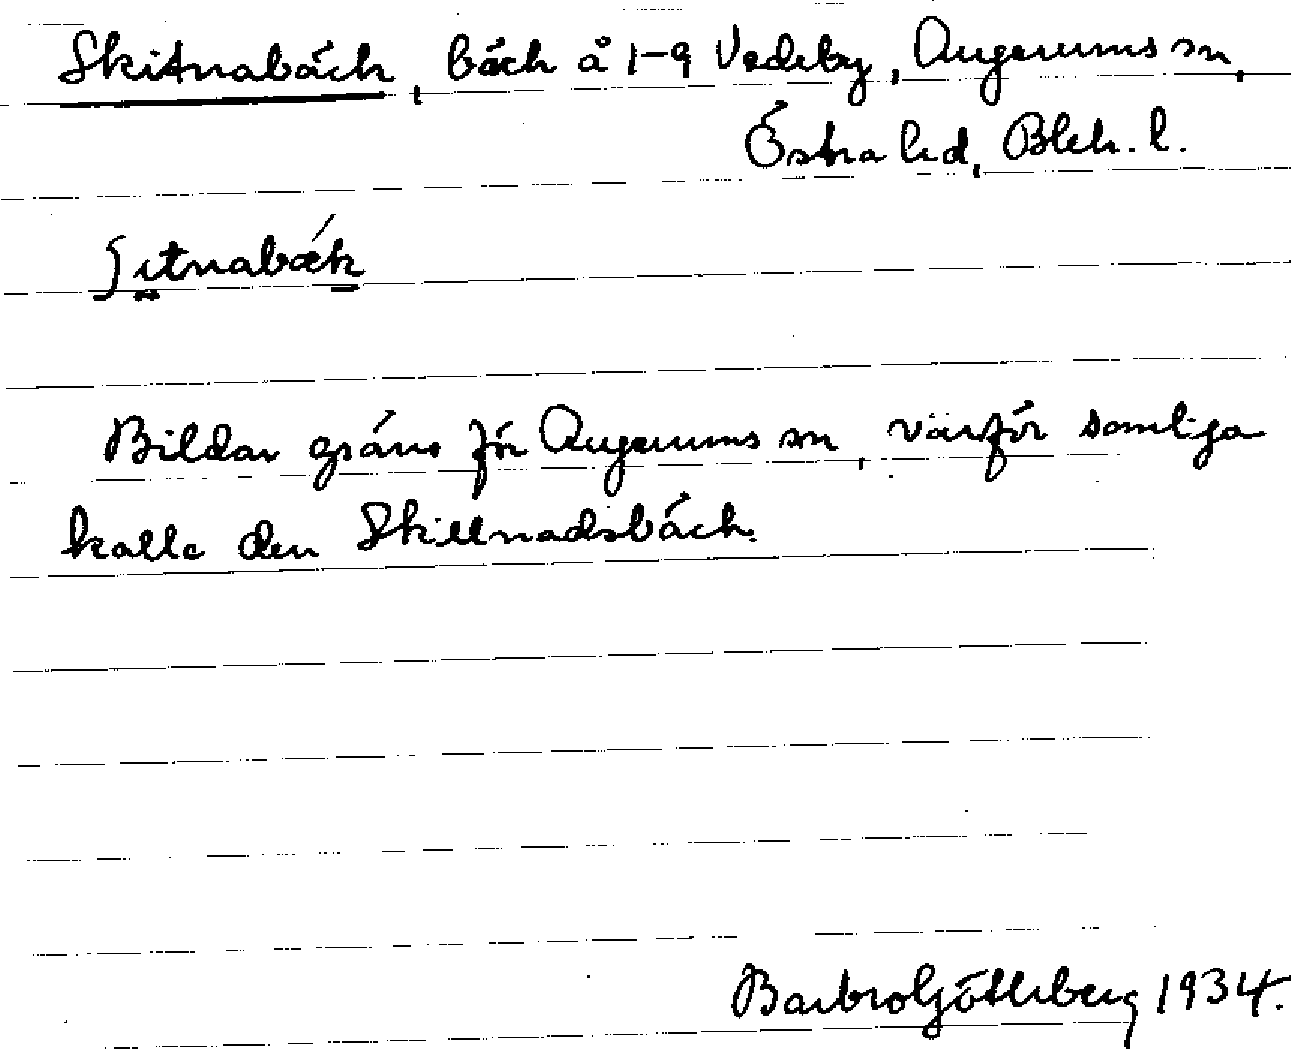 Skitnabäck, bäck å 1-9 Vedeby, Augerums sn,
Östra hd, Blek. l.
ʃitnabæk
Bildar gräns för Augerums sn, varför somliga
kalla den Skillnadsbäck.
Barbro Göthberg 1934.